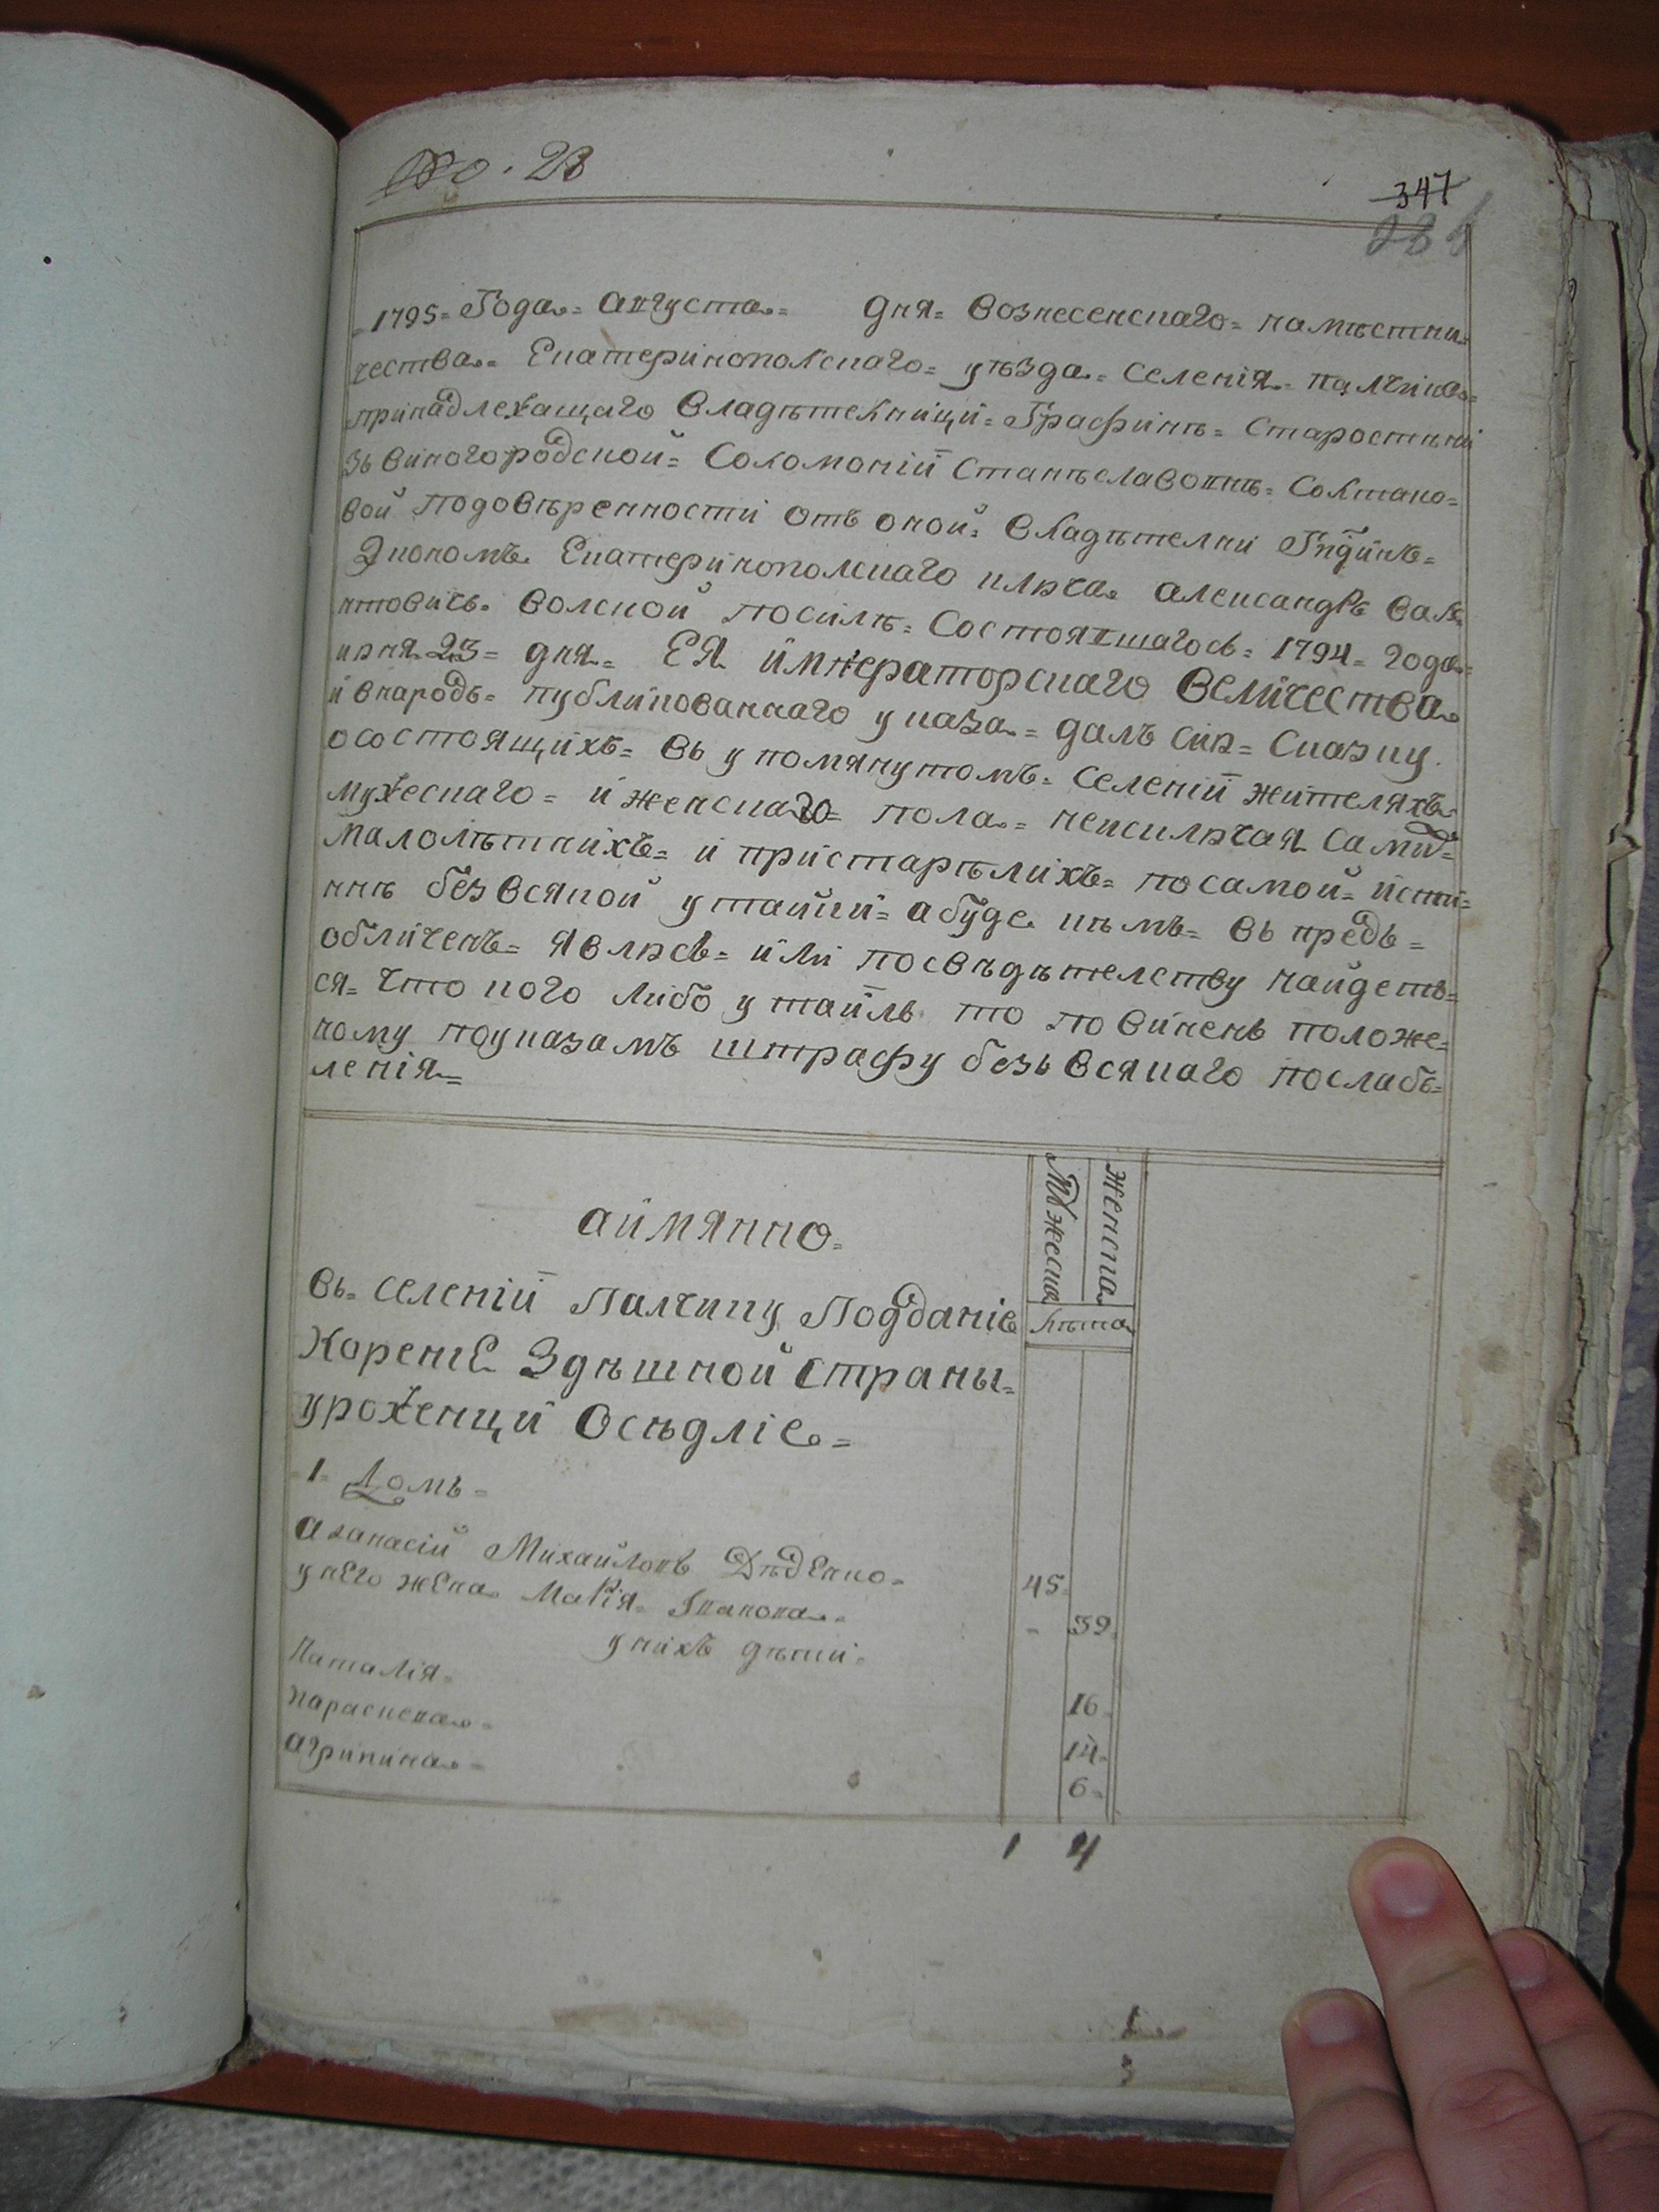 347
1795= Года= августа= дня= вознесенскаго= намѣстни
чества= Екатеринополскаго= уѣзда= селенія= палчика=
принадлежащаго владѣтелници= Графинѣ= старостиній
звѣногородской= Соломоній Станѣславовнѣ= Солтано=
вой подовѣренности отъ оной= владѣтелки
Экономъ Екатеринополскаго ключа александръ вале
нтовичъ волской посилѣ= Состоявшагось= 1794= года=
июня 23= дня= ЕЯ императорскаго величества
и внародъ= публикованнаго указа= далъ сию= Сказку.
осостоящихъ= въ упомянутомъ= селеній жителяхъ
мужескаго= и женскаго= пола= неисключая самих
малолѣтнихъ= и пристарѣлихъ= посамой= исти=
ннѣ безвсякой утайки= абуде кѣмъ= въ предь=
обличенъ= явлюсь= или посвѣдѣтелству найдеть=
ся= что кого либо утаилъ то повиненъ положе=
ному поуказамъ штрафу безь всякаго послаб=
ленія=
аимянно=
Мужеска
женска
лѣта
въ= селеній Палчику Подданіе
Корение Здѣшной страны=
уроженци Осѣдліе=
1= Домъ=
аѳанасій Михайловъ Дѣденко= 45=
у него жена Марія= Іванова= - 39=
у нихъ дѣти=
Наталія= 16=
параскева= 14=
агрипина= 6=
1 4